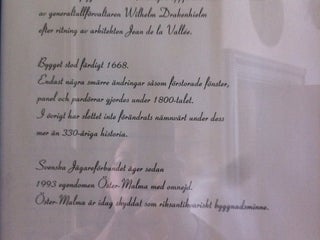 av generaltullförvaltaren Wilhelm Drakenhielm
efter ritning av arkitekten Jean de la Vallée.
Bygget stod färdigt 1668.
Endast några smärre ändringar såsom förstorade fönster,
panel och pardörrar gjordes under 1800-talet.
I övrigt har slottet inte förändrats nämnvärt under dess
mer än 330-åriga historia.
Svenska Jägareförbundet äger sedan
1993 egendomen Öster-Malma med omnejd.
Öster-Malma är idag skyddat som riksantikvariskt byggnadsminne.